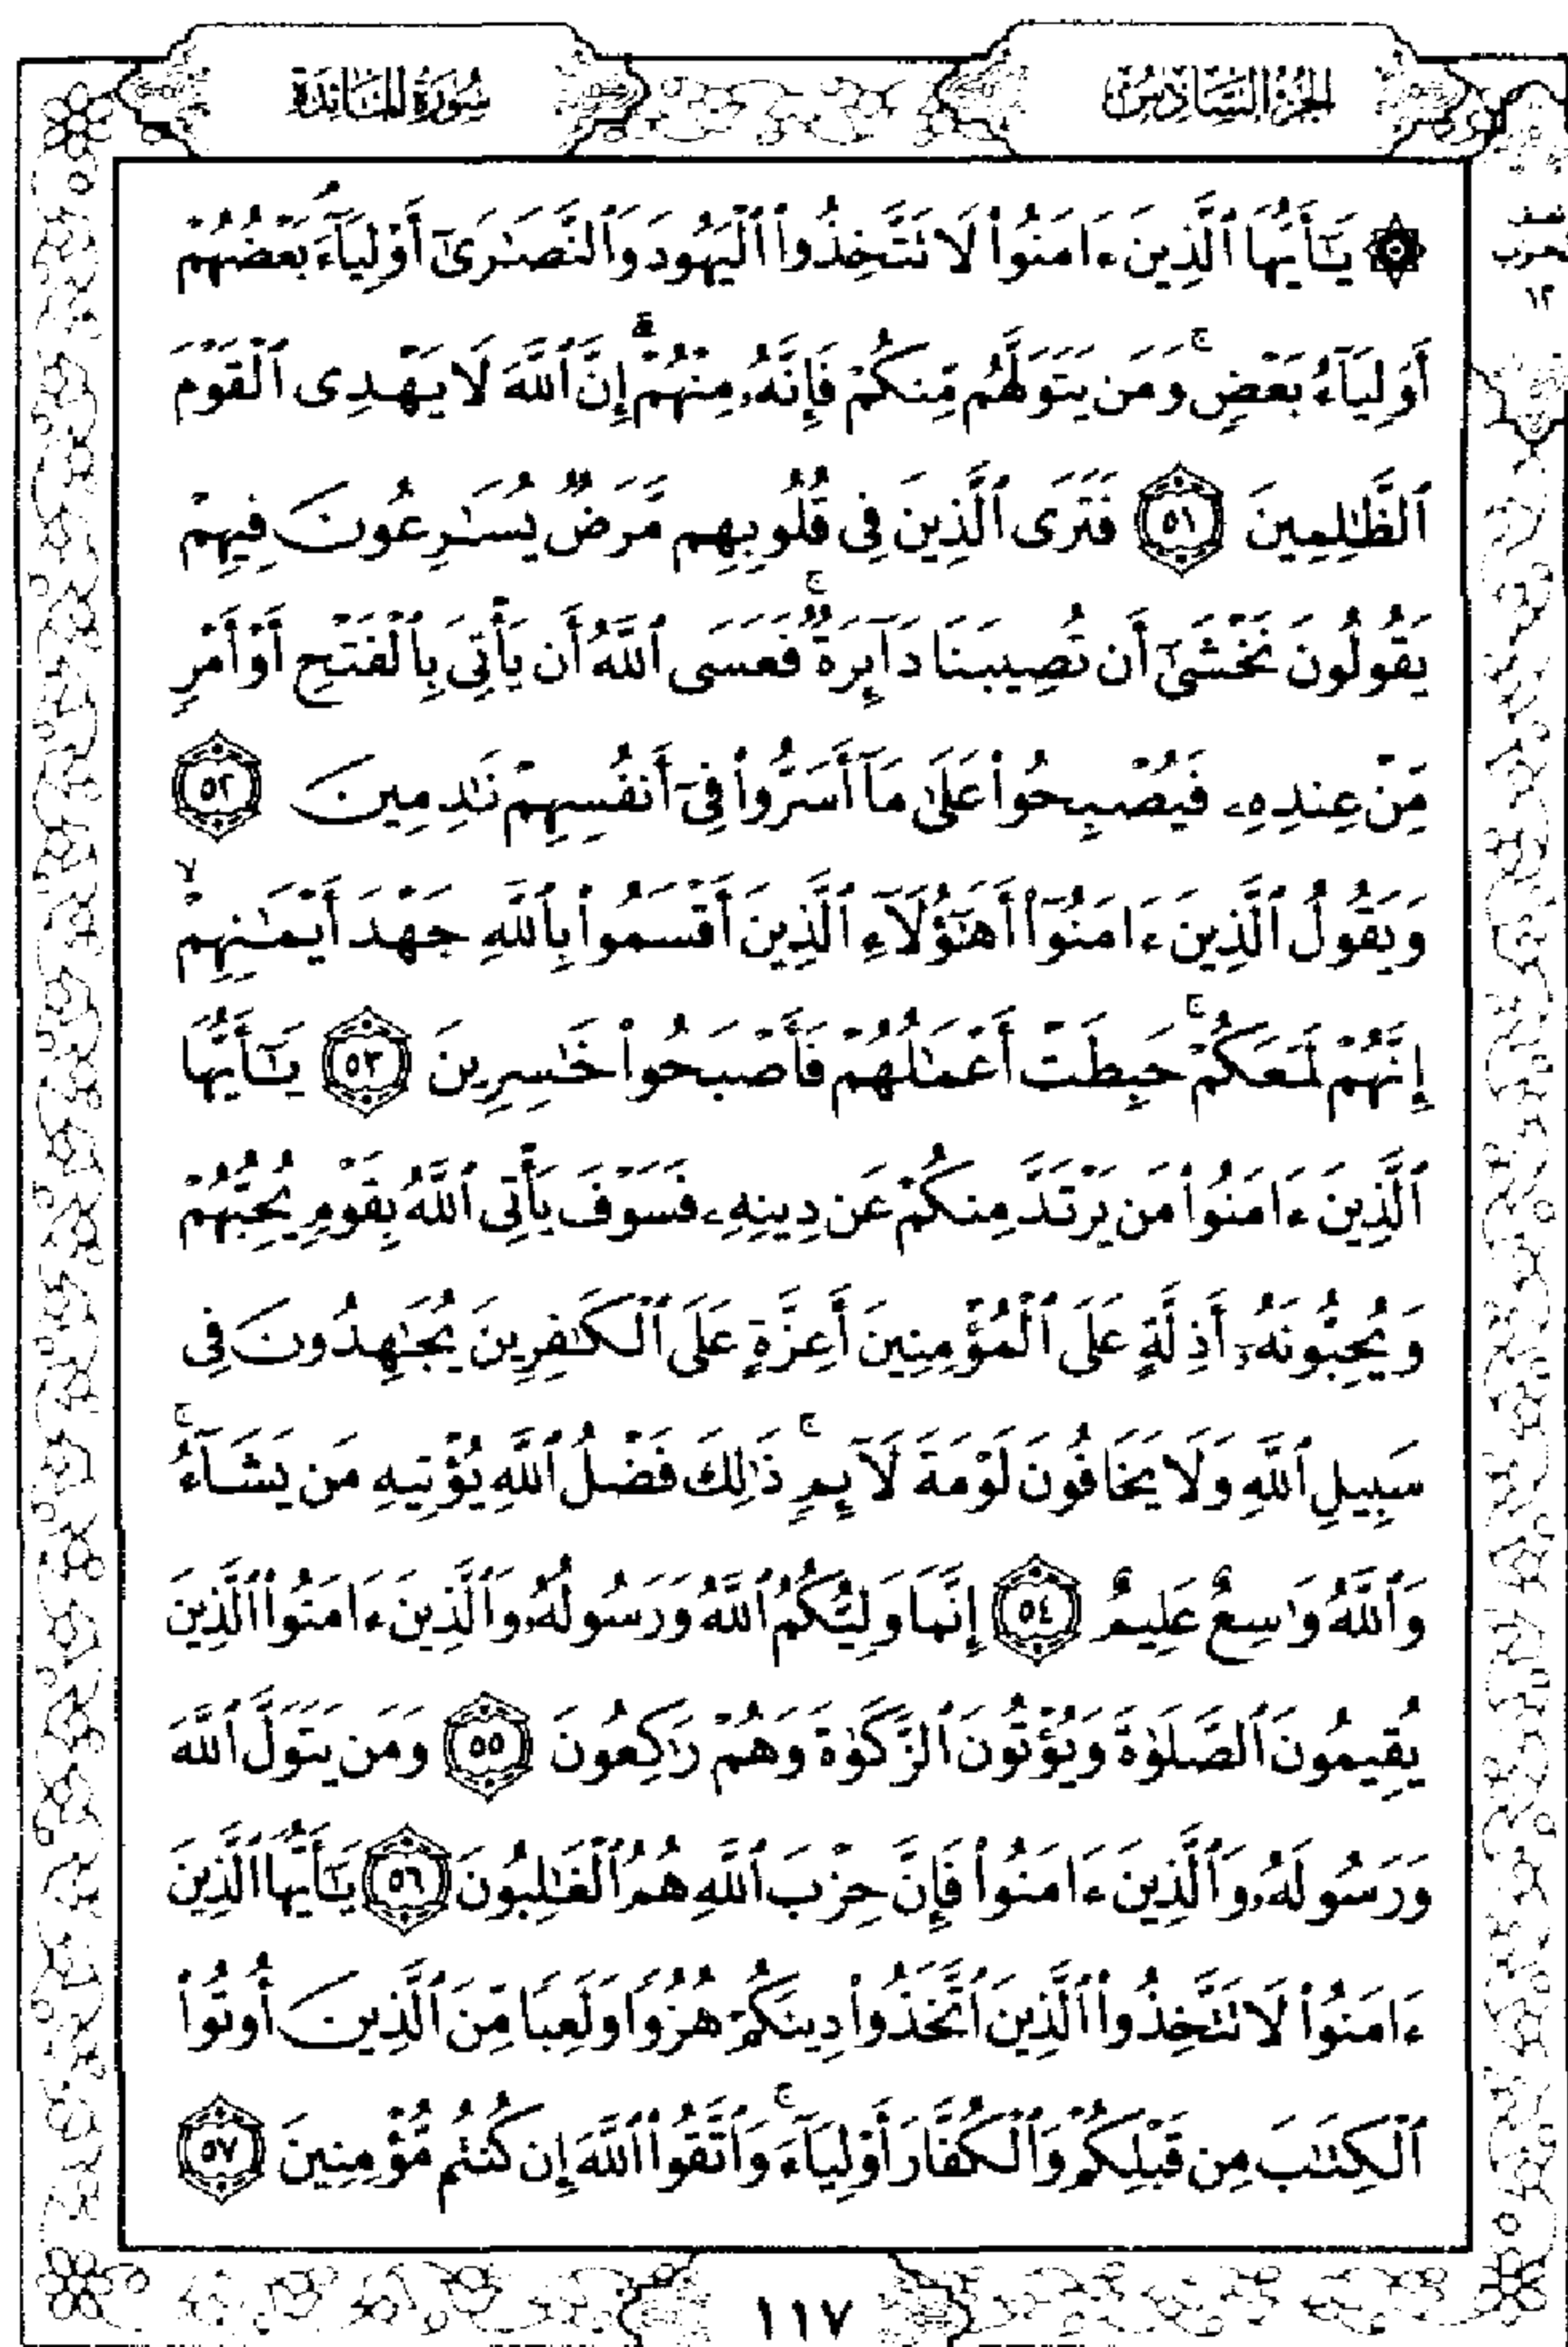 الجزء السادس
سورة المائدة
نصف
الحزب
١٢
۞ يَـٰٓأَيُّهَا ٱلَّذِينَ ءَامَنُوا۟ لَا تَتَّخِذُوا۟ ٱلْيَهُودَ وَٱلنَّصَـٰرَىٰٓ أَوْلِيَآءَ ۘ بَعْضُهُمْ
أَوْلِيَآءُ بَعْضٍ ۚ وَمَن يَتَوَلَّهُم مِّنكُمْ فَإِنَّهُۥ مِنْهُمْ ۗ إِنَّ ٱللَّهَ لَا يَهْدِى ٱلْقَوْمَ
ٱلظَّـٰلِمِينَ ٥١ فَتَرَى ٱلَّذِينَ فِى قُلُوبِهِم مَّرَضٌ يُسَـٰرِعُونَ فِيهِمْ
يَقُولُونَ نَخْشَىٰٓ أَن تُصِيبَنَا دَآئِرَةٌ ۚ فَعَسَى ٱللَّهُ أَن يَأْتِىَ بِٱلْفَتْحِ أَوْ أَمْرٍ
مِّنْ عِندِهِۦ فَيُصْبِحُوا۟ عَلَىٰ مَآ أَسَرُّوا۟ فِىٓ أَنفُسِهِمْ نَـٰدِمِينَ ٥٢
وَيَقُولُ ٱلَّذِينَ ءَامَنُوٓا۟ أَهَـٰٓؤُلَآءِ ٱلَّذِينَ أَقْسَمُوا۟ بِٱللَّهِ جَهْدَ أَيْمَـٰنِهِمْ ۙ
إِنَّهُمْ لَمَعَكُمْ ۚ حَبِطَتْ أَعْمَـٰلُهُمْ فَأَصْبَحُوا۟ خَـٰسِرِينَ ٥٣ يَـٰٓأَيُّهَا
ٱلَّذِينَ ءَامَنُوا۟ مَن يَرْتَدَّ مِنكُمْ عَن دِينِهِۦ فَسَوْفَ يَأْتِى ٱللَّهُ بِقَوْمٍ يُحِبُّهُمْ
وَيُحِبُّونَهُۥٓ أَذِلَّةٍ عَلَى ٱلْمُؤْمِنِينَ أَعِزَّةٍ عَلَى ٱلْكَـٰفِرِينَ يُجَـٰهِدُونَ فِى
سَبِيلِ ٱللَّهِ وَلَا يَخَافُونَ لَوْمَةَ لَآئِمٍ ۚ ذَٰلِكَ فَضْلُ ٱللَّهِ يُؤْتِيهِ مَن يَشَآءُ ۚ
وَٱللَّهُ وَٰسِعٌ عَلِيمٌ ٥٤ إِنَّمَا وَلِيُّكُمُ ٱللَّهُ وَرَسُولُهُۥ وَٱلَّذِينَ ءَامَنُوا۟ ٱلَّذِينَ
يُقِيمُونَ ٱلصَّلَوٰةَ وَيُؤْتُونَ ٱلزَّكَوٰةَ وَهُمْ رَٰكِعُونَ ٥٥ وَمَن يَتَوَلَّ ٱللَّهَ
وَرَسُولَهُۥ وَٱلَّذِينَ ءَامَنُوا۟ فَإِنَّ حِزْبَ ٱللَّهِ هُمُ ٱلْغَـٰلِبُونَ ٥٦ يَـٰٓأَيُّهَا ٱلَّذِينَ
ءَامَنُوا۟ لَا تَتَّخِذُوا۟ ٱلَّذِينَ ٱتَّخَذُوا۟ دِينَكُمْ هُزُوًا وَلَعِبًا مِّنَ ٱلَّذِينَ أُوتُوا۟
ٱلْكِتَـٰبَ مِن قَبْلِكُمْ وَٱلْكُفَّارَ أَوْلِيَآءَ ۚ وَٱتَّقُوا۟ ٱللَّهَ إِن كُنتُم مُّؤْمِنِينَ ٥٧
١١٧